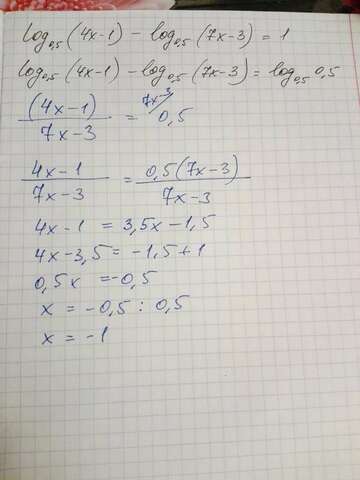 log₀,₅(4x-1) - log₀,₅(7x-3) = 1
log₀,₅(4x-1) - log₀,₅(7x-3) = log₀,₅ 0,5
(4x-1)/7x-3 = 7x-3/ 0,5
4x-1/7x-3 = 0,5(7x-3)/7x-3
4x-1 = 3,5x-1,5
4x-3,5 = -1,5+1
0,5x = -0,5
x = -0,5 : 0,5
x = -1